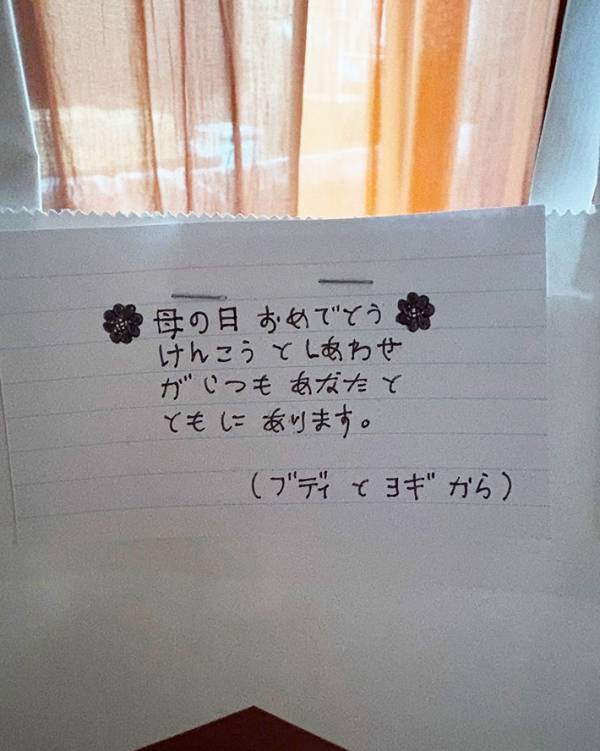 母の日 おめでとう
けんこう と しあわせ
が いつも あなた と
ともに あります。
(ブディ と ヨギ から)